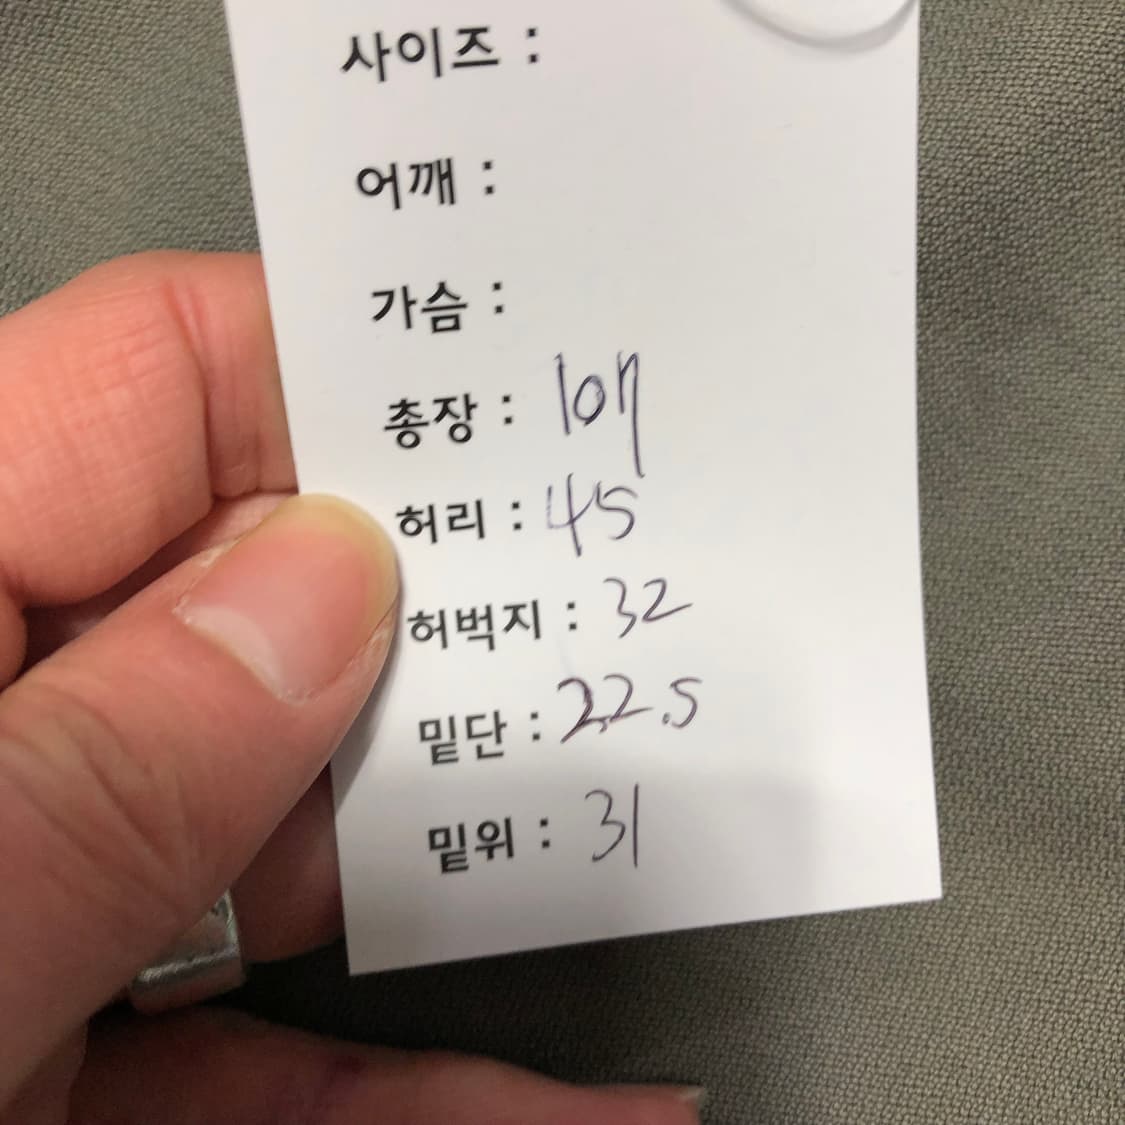 사이즈 :
어깨 :
가슴 :
총장 : 107
허리 : 45
허벅지 : 32
밑단 : 22.5
밑위 : 31